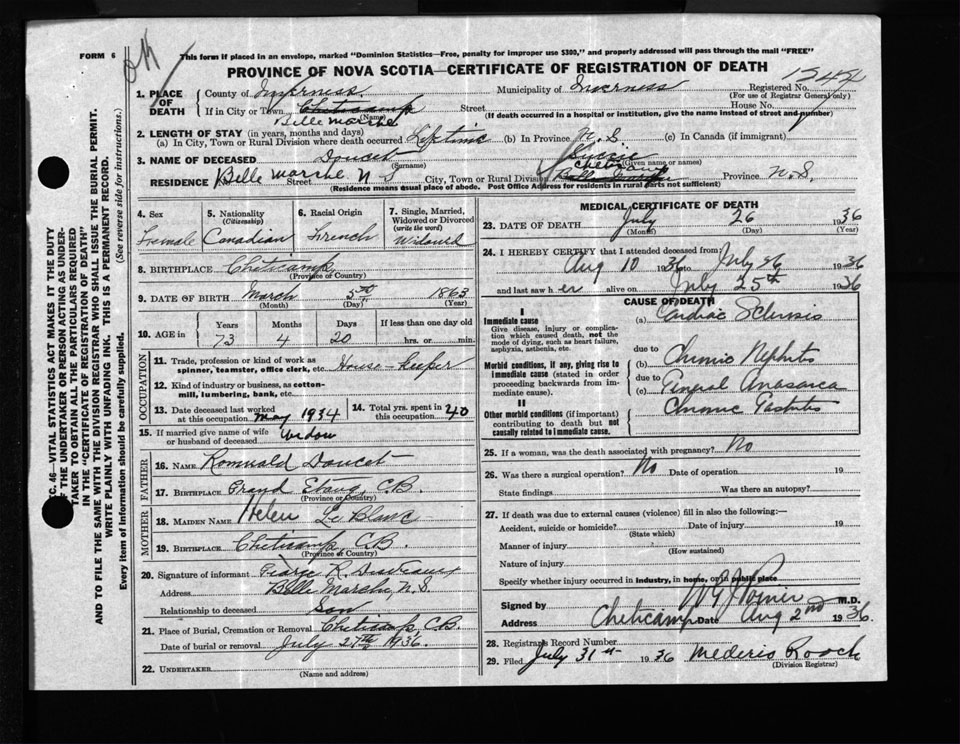 FORM 6
This form if placed in an envelope, marked "Dominion Statistics—Free, penalty for improper use $300," and properly addressed will pass through the mail "FREE"
PROVINCE OF NOVA SCOTIA—CERTIFICATE OF REGISTRATION OF DEATH
1. PLACE OF DEATH
County of Inverness Municipality of Inverness Registered No. 1242
(For use of Registrar General only)
If in City or Town Cheticamp Street House No.
Belle Marche (Name) (If death occurred in a hospital or institution, give the name instead of street and number)
2. LENGTH OF STAY (in years, months and days)
(a) In City, Town or Rural Division where death occurred Lifetime (b) In Province N.S. (c) In Canada (if immigrant)
3. NAME OF DECEASED Doucet
(Surname) (Given name or names)
Cheticamp
RESIDENCE Belle Marche N S Street City, Town or Rural Division Province N.S.
(Residence means usual place of abode. Post Office Address for residents in rural parts not sufficient)
4. Sex 5. Nationality (Citizenship) 6. Racial Origin 7. Single, Married, Widowed or Divorced (write the word)
Female Canadian French Widowed
8. BIRTHPLACE Cheticamp
(Province or Country)
9. DATE OF BIRTH March 5th 1863
(Month) (Day) (Year)
10. AGE in Years Months Days If less than one day old
73 4 20 hrs. or min.
OCCUPATION
11. Trade, profession or kind of work as spinner, teamster, office clerk, etc. House-keeper
12. Kind of industry or business, as cotton-mill, lumbering, bank, etc.
13. Date deceased last worked at this occupation May 1934 14. Total yrs. spent in this occupation 40
15. If married give name of wife or husband of deceased widow
FATHER
16. NAME Romuald Doucet
17. BIRTHPLACE Grand Etang, C.B.
(Province or Country)
MOTHER
18. MAIDEN NAME Helen Le Blanc
19. BIRTHPLACE Cheticamp C.B.
(Province or Country)
20. Signature of informant R.
Address Belle Marche, N.S.
Relationship to deceased Son
21. Place of Burial, Cremation or Removal Cheticamp, C.B.
Date of burial or removal July 27th 1936.
22. UNDERTAKER
(Name and address)
MEDICAL CERTIFICATE OF DEATH
23. DATE OF DEATH July 26 1936
(Month) (Day) (Year)
24. I HEREBY CERTIFY that I attended deceased from:
Aug 10 1936 to July 26 1936
and last saw h er alive on July 25th 1936
CAUSE OF DEATH
I
Immediate cause (a) Cardiac Sclerosis
Give disease, injury or complication which caused death, not the mode of dying, such as heart failure, asphyxia, asthenia, etc.
due to
(b) Chronic Nephritis
Morbid conditions, if any, giving rise to immediate cause (stated in order proceeding backwards from immediate cause).
due to
(c) General Anasarca
II
Other morbid conditions (if important) contributing to death but not causally related to immediate cause.
Chronic
25. If a woman, was the death associated with pregnancy? No
26. Was there a surgical operation? No Date of operation 19
State findings Was there an autopsy?
27. If death was due to external causes (violence) fill in also the following:—
Accident, suicide or homicide? Date of injury 19
(State which)
Manner of injury
(How sustained)
Nature of injury
Specify whether injury occurred in industry, in home, or in public place
Signed by M.D.
Address Cheticamp Date Aug 2nd 1936
28. Registrars Record Number
29. Filed July 31st 1936 Mederis Roach
(Division Registrar)
C. 46—VITAL STATISTICS ACT MAKES IT THE DUTY
OF THE UNDERTAKER OR PERSON ACTING AS UNDERTAKER TO OBTAIN ALL THE PARTICULARS REQUIRED
IN THE "CERTIFICATE OF REGISTRATION OF DEATH"
AND TO FILE THE SAME WITH THE DIVISION REGISTRAR WHO SHALL ISSUE THE BURIAL PERMIT.
WRITE PLAINLY WITH UNFADING INK. THIS IS A PERMANENT RECORD.
Every item of information should be carefully supplied. (See reverse side for instructions.)